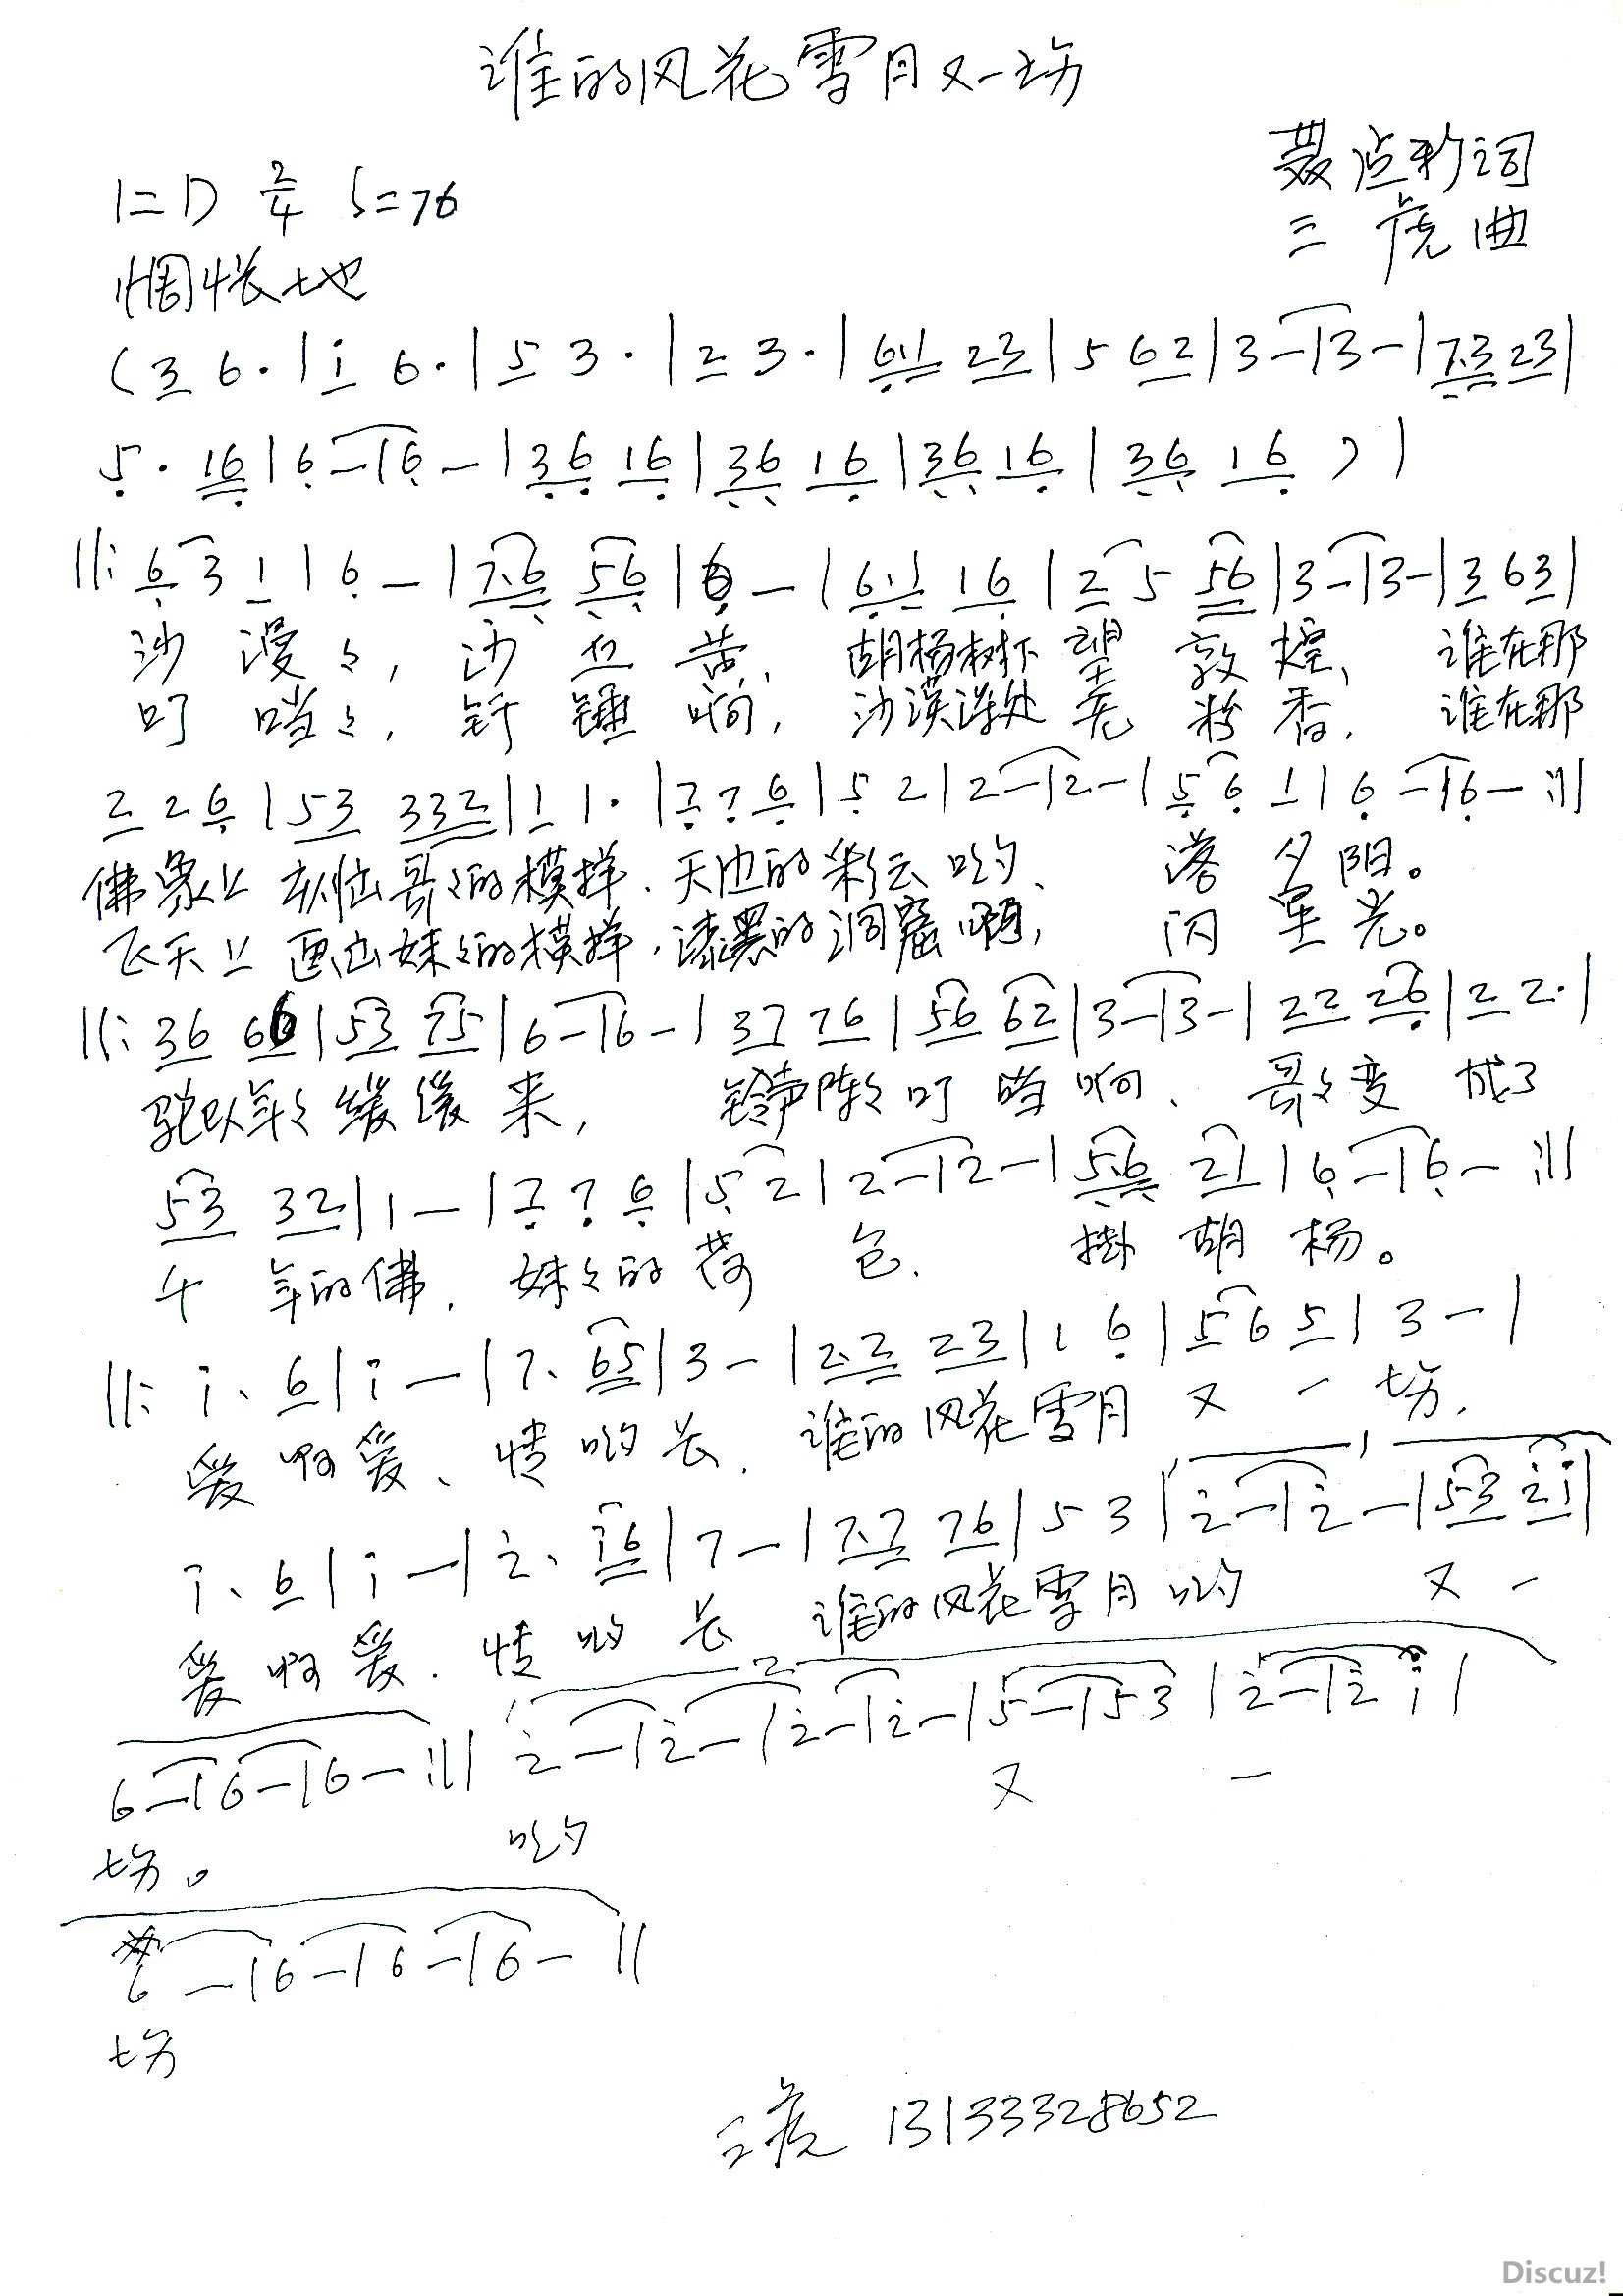 谁的风花雪月又一场
聂造彩词
1=D 2/4 ♩=76
三虎曲
惆怅地
(3 6·|i 6·|5 3·|2 3·|6·1 23|5 62|3-|3-|7·3 23|
5·16|6-|6-|36 16|36 16|36 16|36 16)|
||:6 3 1|6-|7·6 56|6-|6·1 16|2 5 56|3-|3-|3 63|
沙漫々,沙丘黄,胡杨树下望敦煌、谁在那
叮噹々,钎锤响,沙漠深处 粉香,谁在那
2 2 6|53 332|1 1·|7 7 6|5 2|2-|2-|5 6 1|6-|6-:||
佛象上 刻出哥々的模样、天边的彩云哟、落夕阳。
飞天上画出妹々的模样,漆黑的洞窟啊,闪星光。
||:36 66|53 75|6-|6-|37 76|56 62|3-|3-|22 26|2 2·|
驼队年々缓缓来,铃声阵々叮噹响、哥々变成了
53 32|1-|7 7 6|5 2|2-|2-|5·6 21|6-|6-:||
千年的佛,妹々的荷包、掛胡杨。
||:i·6|i-|7·65|3-|2·2 23|1 6|5 6 5|3-|
爱啊爱、情哟长、谁的风花雪月又一场,
i·6|i-|2·i6|7-|7·7 76|5 3|2-|2-|53 2i|
爱啊爱、情哟长 谁的风花雪月哟 又一
2
6-|6-|6-:|| 2-|2-|2-|2-|5-|53|2-|2 i|
又 一
场。 哟
6-|6-|6-|6-||
场
三虎 13133328652
Discuz!